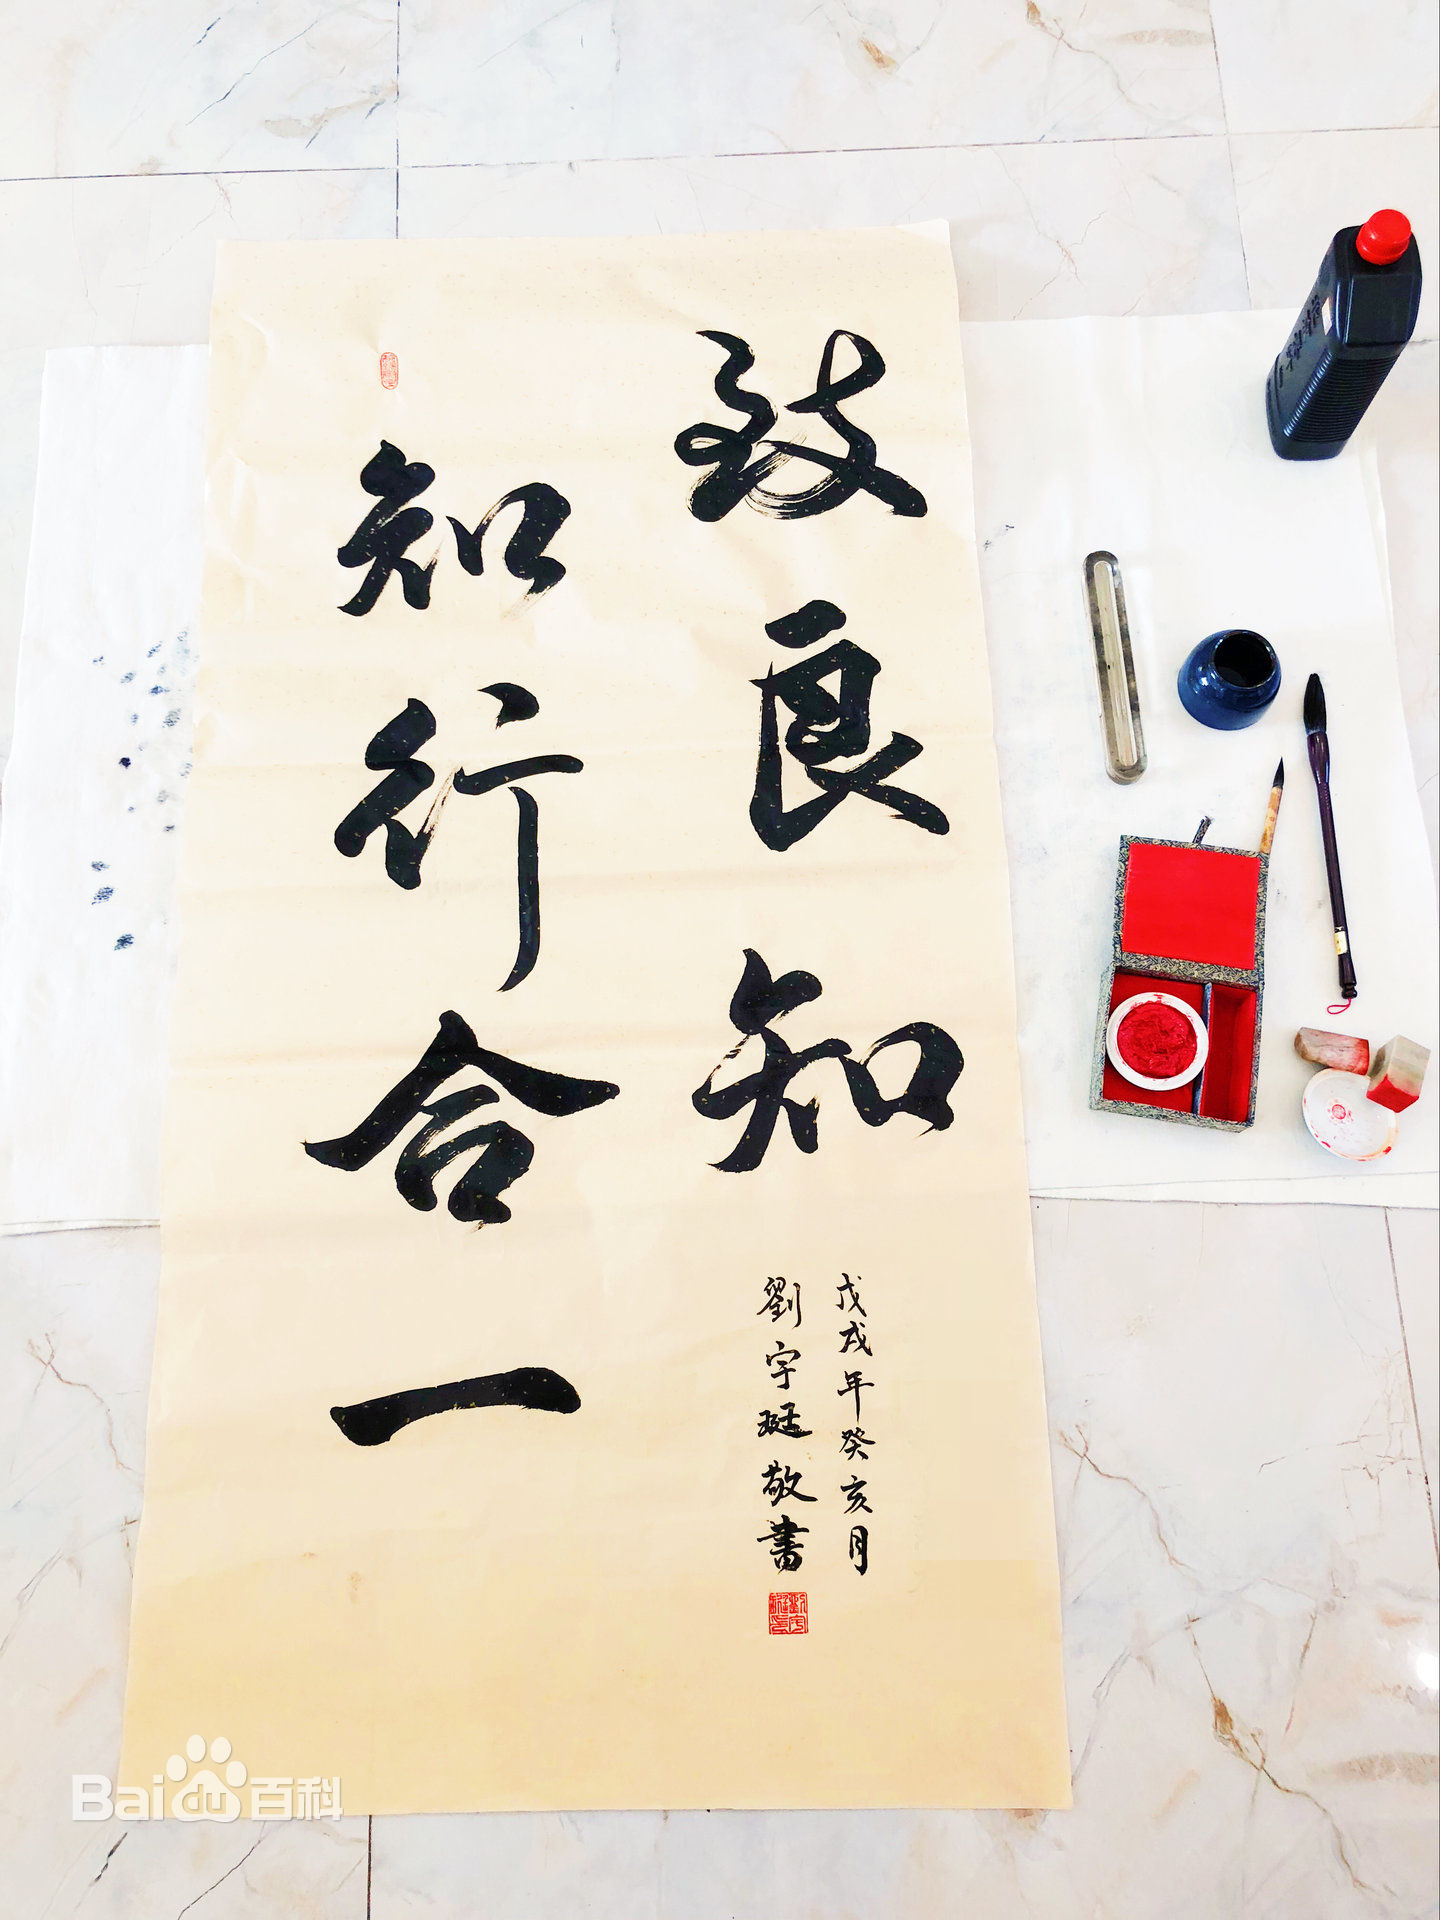 致良知
知行合一
戊戌年癸亥月
劉宇珽敬書
Bai百科